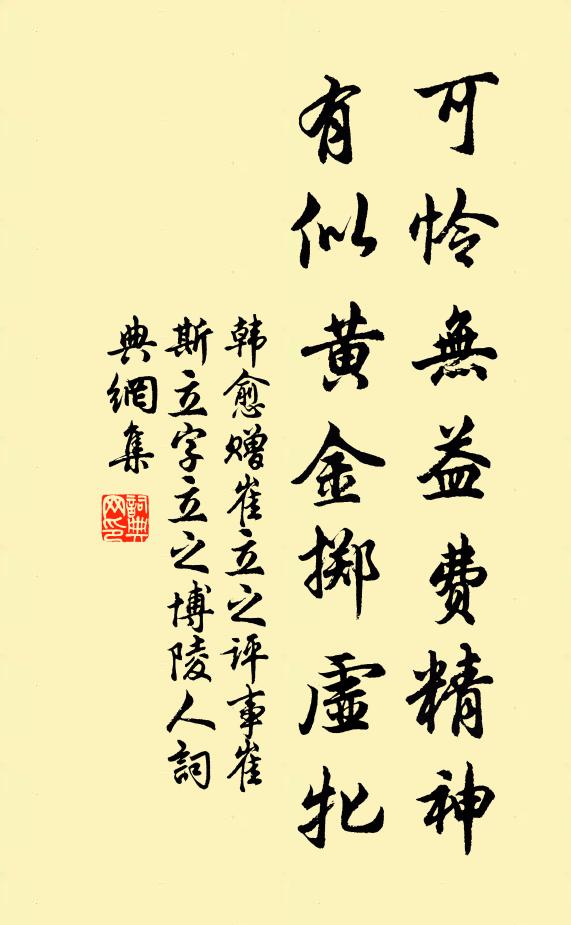 可怜無益費精神
有似黃金掷虛牝
韩愈赠崔立之评事崔
斯立字立之博陵人詞
典網集
詞典
网印